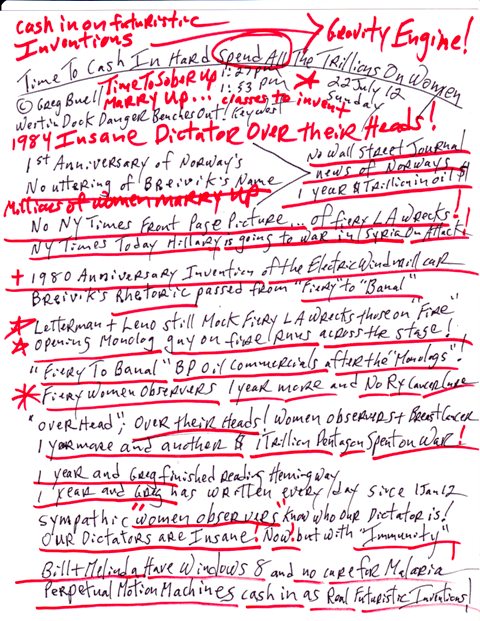 Cash in on futuristic
Inventions
Gravity Engine!
Time To Cash In Hard Spend All The Trillions On Women
Time To Sober Up 1:27 pm
© Greg Buell Marry Up... classes to invent
1:33 pm 22 July 12
Sunday
Westin Dock Danger Benches Out! Key West
1984 Insane Dictator Over their Heads!
1st Anniversary of Norway's
No uttering of Breivik's Name
No Wall Street Journal
news of Norways
1 year $ Trillion in oil $!
Millions of women marry up
No NY Times Front Page Picture... of fiery LA wrecks!
NY Times Today Hillary is going to war in Syria On Attack!
+ 1980 Anniversary Invention of the Electric Windmill car
Breivik's Rhetoric passed from "Fiery" to "Banal"
Letterman + Leno still Mock Fiery LA Wrecks those on "Fire"
opening Monolog guy on fire runs across the stage!
"Fiery To Banal" BP oil commercials after the "Monologs"!
Fiery Women Observers 1 year more and No Rx Cancer Cure
"overHead"; Over their Heads! Women observers + Breast Cancer
1 yearmore and another $ 1 Trillion Pentagon Spent on War!
1 year and Greg finished reading Hemingway
1 year and Greg has written every day since 1Jan12
sympathic "women observers" know who our Dictator is!
Our Dictators are Insane! Now! but with "Immunity"
Bill + Melinda Have Windows 8 and no cure for Malaria
Perpetual Motion Machines cash in as Real Futuristic Inventions!